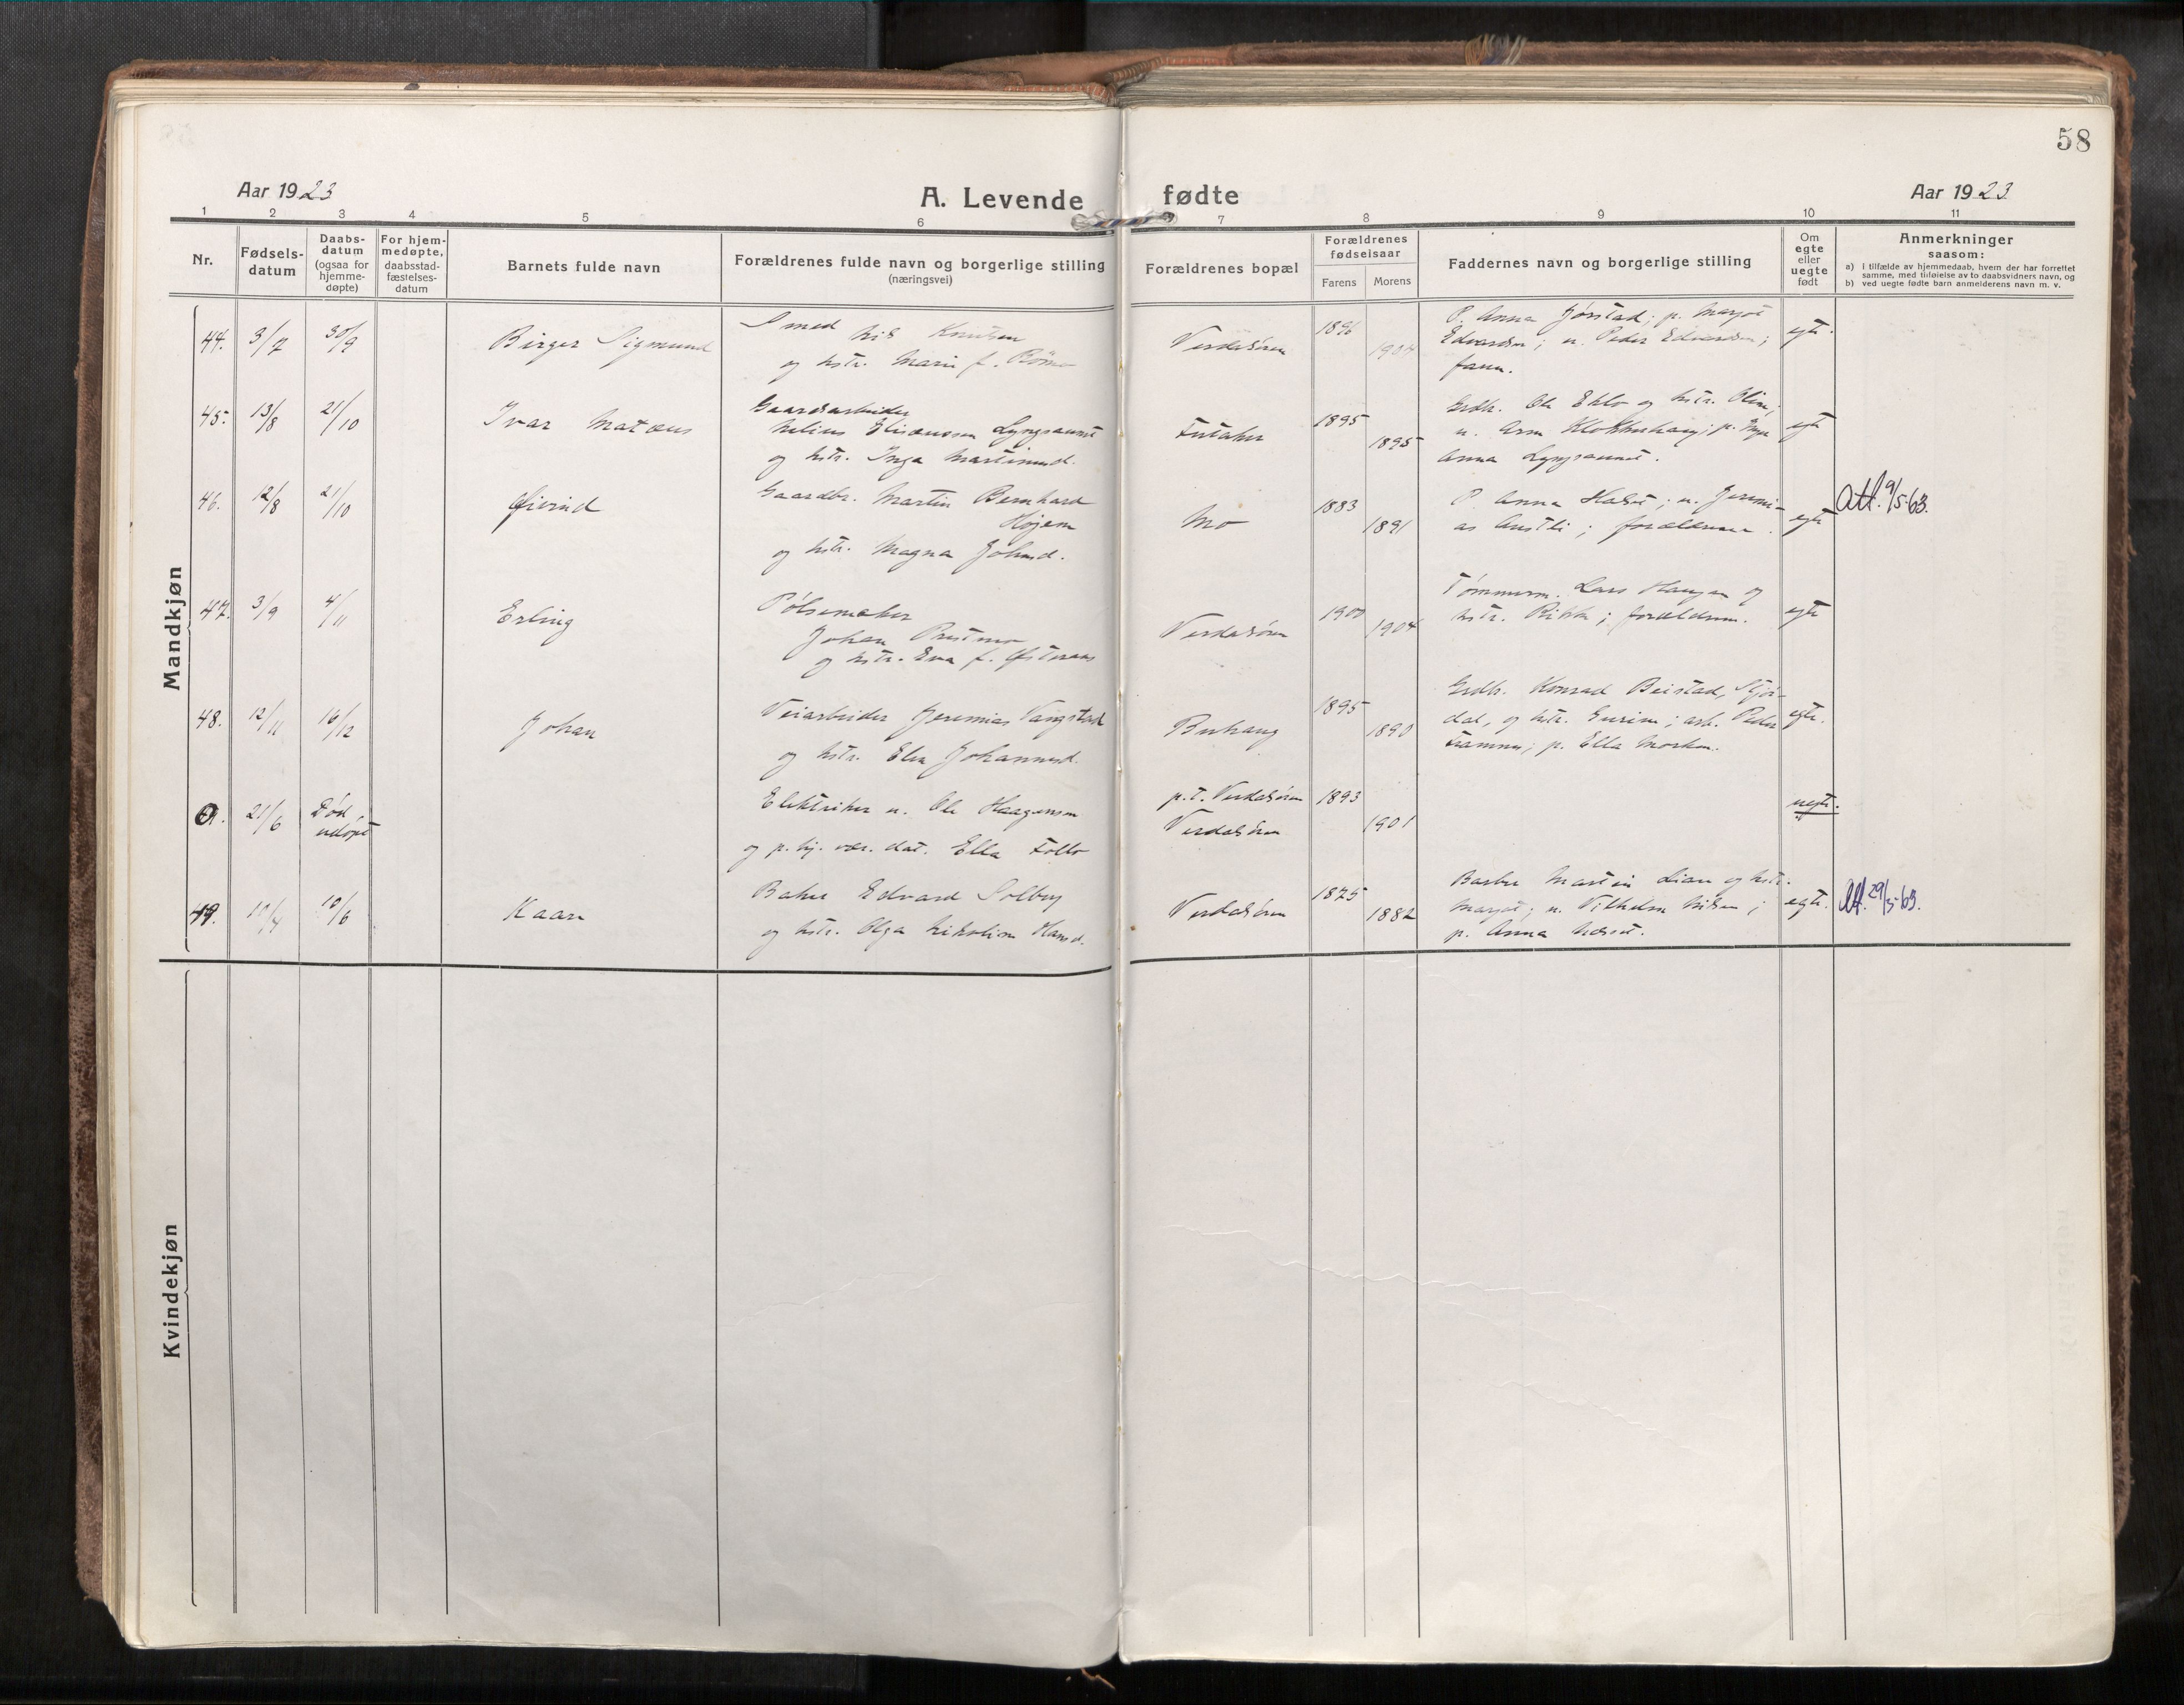 58
Aar 1923
A. Levende fødte
Aar 1923
1 2 3 4 5 6 7 8 9 10 11
Nr.
Fødsels-
datum
Daabs-
datum
(ogsaa for
hjemme-
døpte)
For hjem-
medøpte,
daabsstad-
fæstelses-
datum
Barnets fulde navn
Forældrenes fulde navn og borgerlige stilling
(næringsvei)
Forældrenes bopæl
Forældrenes
fødselsaar
Farens Morens
Faddernes navn og borgerlige stilling
Om
egte
eller
uegte
født
Anmerkninger
saasom:
a) i tilfælde av hjemmedaab, hvem der har forrettet
samme, med tilføielse av to daabsvidners navn, og
b) ved uegte fødte barn anmelderens navn m. v.
Mandkjøn
44. 3/7 30/9 Birger Sigmund
Smed Nik Knutsen
og hstr. Marie f.
Verdalsøren 1896 1904
P. Anna Jørstad; p. Margot
Edvardsen; u. Peder Edvardsen;
faren.
egte.
45. 13/8 21/10 Ivar Matæus
Gaardsarbeider
Nelius Elisæussen Lyngsaunet
og hstr. Inga Martinusd.
1895 1895
Grdbr. Ole Eklo og hstr. Oline;
u. Arne Klokkerhaug; p.
Anna Lyngsaunet.
egte
46. 12/8 21/10 Øivind
Gaardbr. Martin Bernhard
Højem
og hstr. Magna Johnsd.
Mo 1883 1891
P. Anna ; u. Jeremi-
as ; forældrene.
egte
Att. 9/5-63.
47. 3/9 4/11 Erling
Pølsemaker
Johan Prestmo
og hstr. Eva f. Østeraas
Verdalsøren 1900 1904
Tømmerm. Lars Haugan og
hstr. Rikke; forældrene.
egte
48. 12/11 16/12 Johan
Veiarbeider Jeremias Vangstad
og hstr. Elen Johannesd.
1895 1890
Grdbr. Konrad Beistad, Stjør-
dal, og hstr. Gurine; arb. Peder
; p. Ella Morken.
egte.
0. 21/6 Død,
udøpt
Elektriker u. Ole Haagensen
og p. hj. vær. dat. Ella Follo
p.t. Verdalsøren 1893
Verdalsøren 1901
uegte.
49. 10/4 10/6 Kaare
Baker Edvard Solberg
og hstr. Olga Nikoline Hansd.
Verdalsøren 1875 1882
Barber Martin Lian og hstr.
Margot; u. Vilhelm Nilsen;
p. Anna
egte.
Att. 29/5-63.
Kvindekjøn